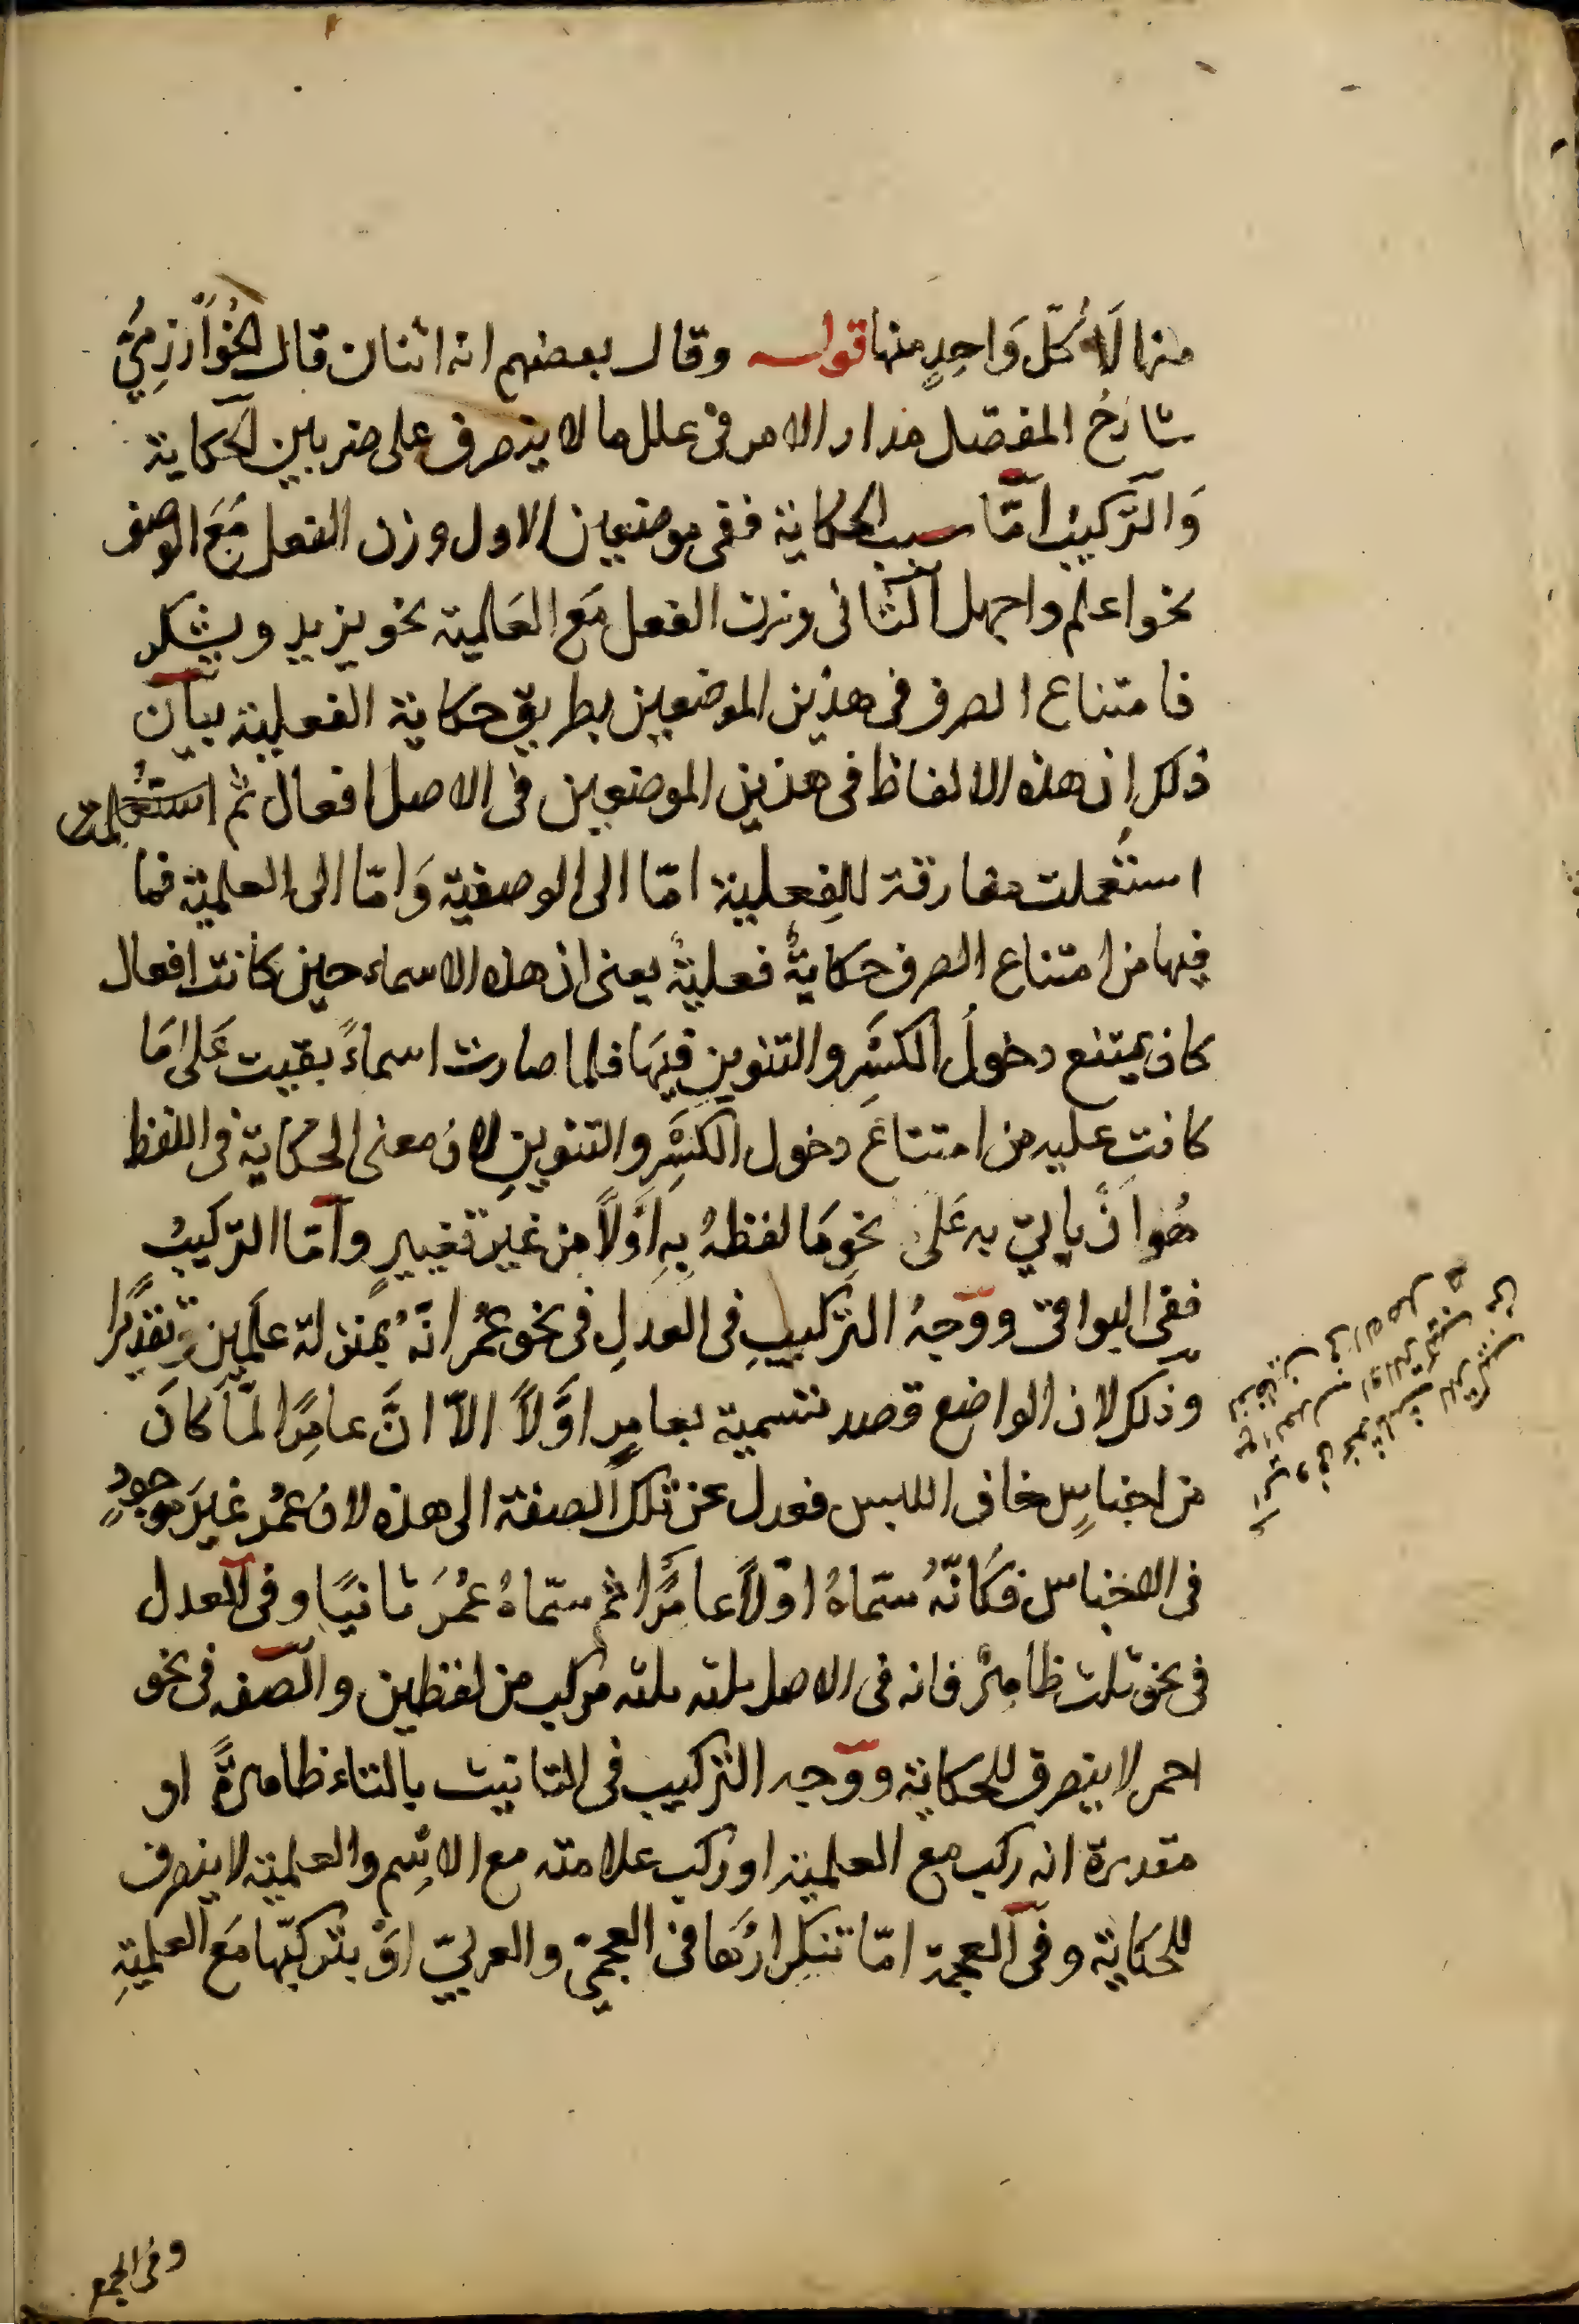 منها لَا كُلّ وَاحِدٍ منها قوله وقال بعضهم انه اثنان قال الخُوارزمِيُّ
شارحُ المفصّل مدار الامر فى علل ما لا ينصرف على ضربين الحكاية
وَالتّركيب امّا سبب الحكاية ففى موضعين الاول وزن الفعل مَعَ الوصف
نحو اعلم واجهل الثانى وزن الفعل مَع العَلمية نحو يزيد ويشكر
فامتناع الصرف فى هذين الموضعين بطريق حكاية الفعلية بيان
ذلك اِن هذه الالفاظ فى هذين الموضعين فى الاصل افعال ثم استُعملت
استُعملت مفارقة للفِعلية امّا الى الوصفيّة وَامّا الى العلميّة فما
فيها من امتناع الصرف حكايةٌ فعليةٌ يعنى ان هذه الاسماء حين كانت افعال
كان يمتنع دخولُ الكسْرِ والتنوين فيهَا فلما صارت اسماءً بقيت عَلى مَا
كانت عليه من امتناع دخول الكسْرِ والتنوينِ لان معنى الحكاية فى اللفظ
هُو اَنْ ياتىَ به عَلى نحوِ مَا لفظهُ بِهِ اوَّلاً من غير تغييرٍ وامّا التركيبُ
ففى البواقى ووَجهُ التركيبِ فى العدلِ فى نحو عُمر انّهُ بمنزلة علَمين تقديرًا
وذلك لان الواضع قصد تسمية بعامرٍ اوَّلاً الاّ انَّ عامِرًا لمّا كانَ
من اجناسٍ خاف اللبس فعدل عن تلك الصفة الى هذه لان عُمر غيرَ موجودٍ
فى الاجناس فكَانّهُ سمّاهُ اوّلاً عامرًا ثم سمّاهُ عُمَرَ ثانيًا وفى العدل
فى نحو ثلث ظاهرٌ فانه فى الاصل ثلثه ثلثه مركب من لفظين والصفه فى نحو
احمر لا ينصرف للحكاية ووَجه التركيب فى التانيث بالتاء ظاهرةً او
مقدرة انه ركب مع العلمية او ركب علامته مع الاسِم والعلمية لا ينصرف
للحكاية وفى العجمة امّا تكرارُهَا فى العجمىّ والعربىّ اوْ بتركبّها مَع العلميةِ
وفى الجمع